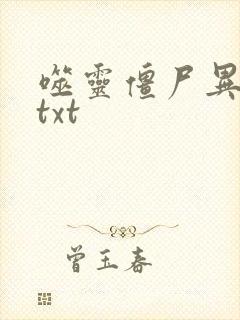 噬靈僵尸異
txt
曾玉春